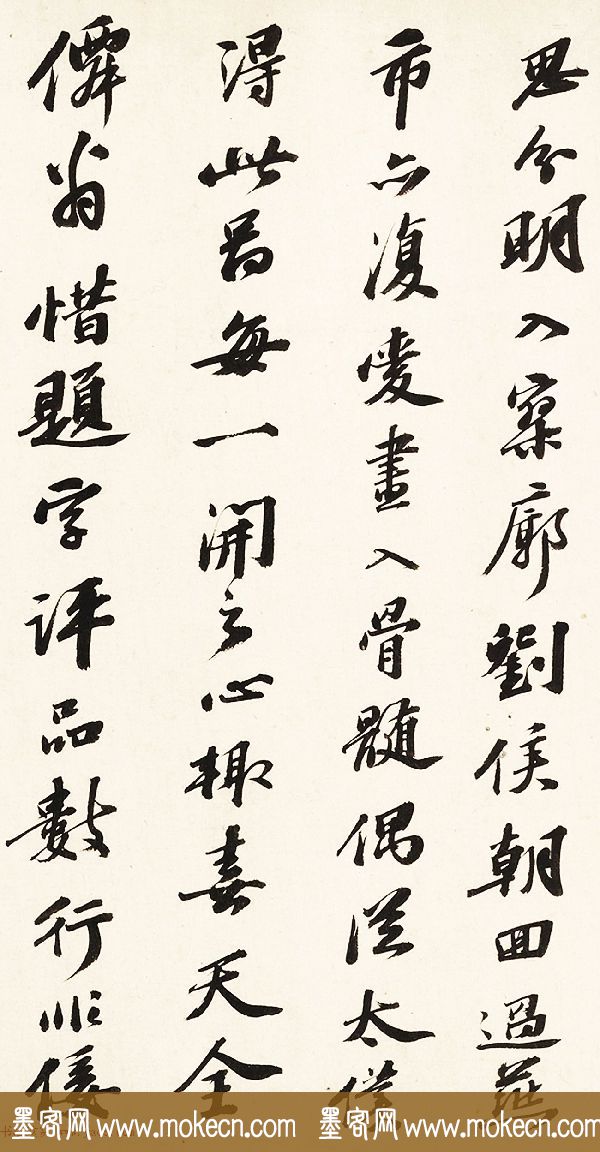 思分明入寥廓劉侯朝回過燕
市亦復愛畫入骨髓偶從太僕
得此啚每一開之心輒喜天全
僊翁惜題字評品數行非
墨客网 www.mokecn.com 墨客网 www.mokecn.com